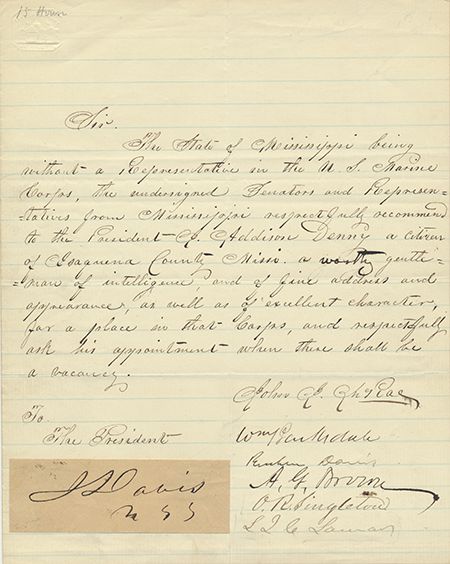 15 Hour
Sir.
The State of Mississippi being
without a Representative in the U S. Marine
Corps, the undersigned Senators and Represen=
=tatives from Mississippi respectfully recommend
to the President J. Addison Denny a citizen
of Issaquena County Miss. a worthy gentle=
=man of intelligence, and of fine address and
appearance, as well as of excellent character,
for a place in that Corps, and respectfully
ask his appointment when there shall be
a vacancy.
John J. McRae
To
The President
Wm Barksdale
Reuben Davis
A. G. Brown
O. R. Singleton
L Q C Lamar
J Davis